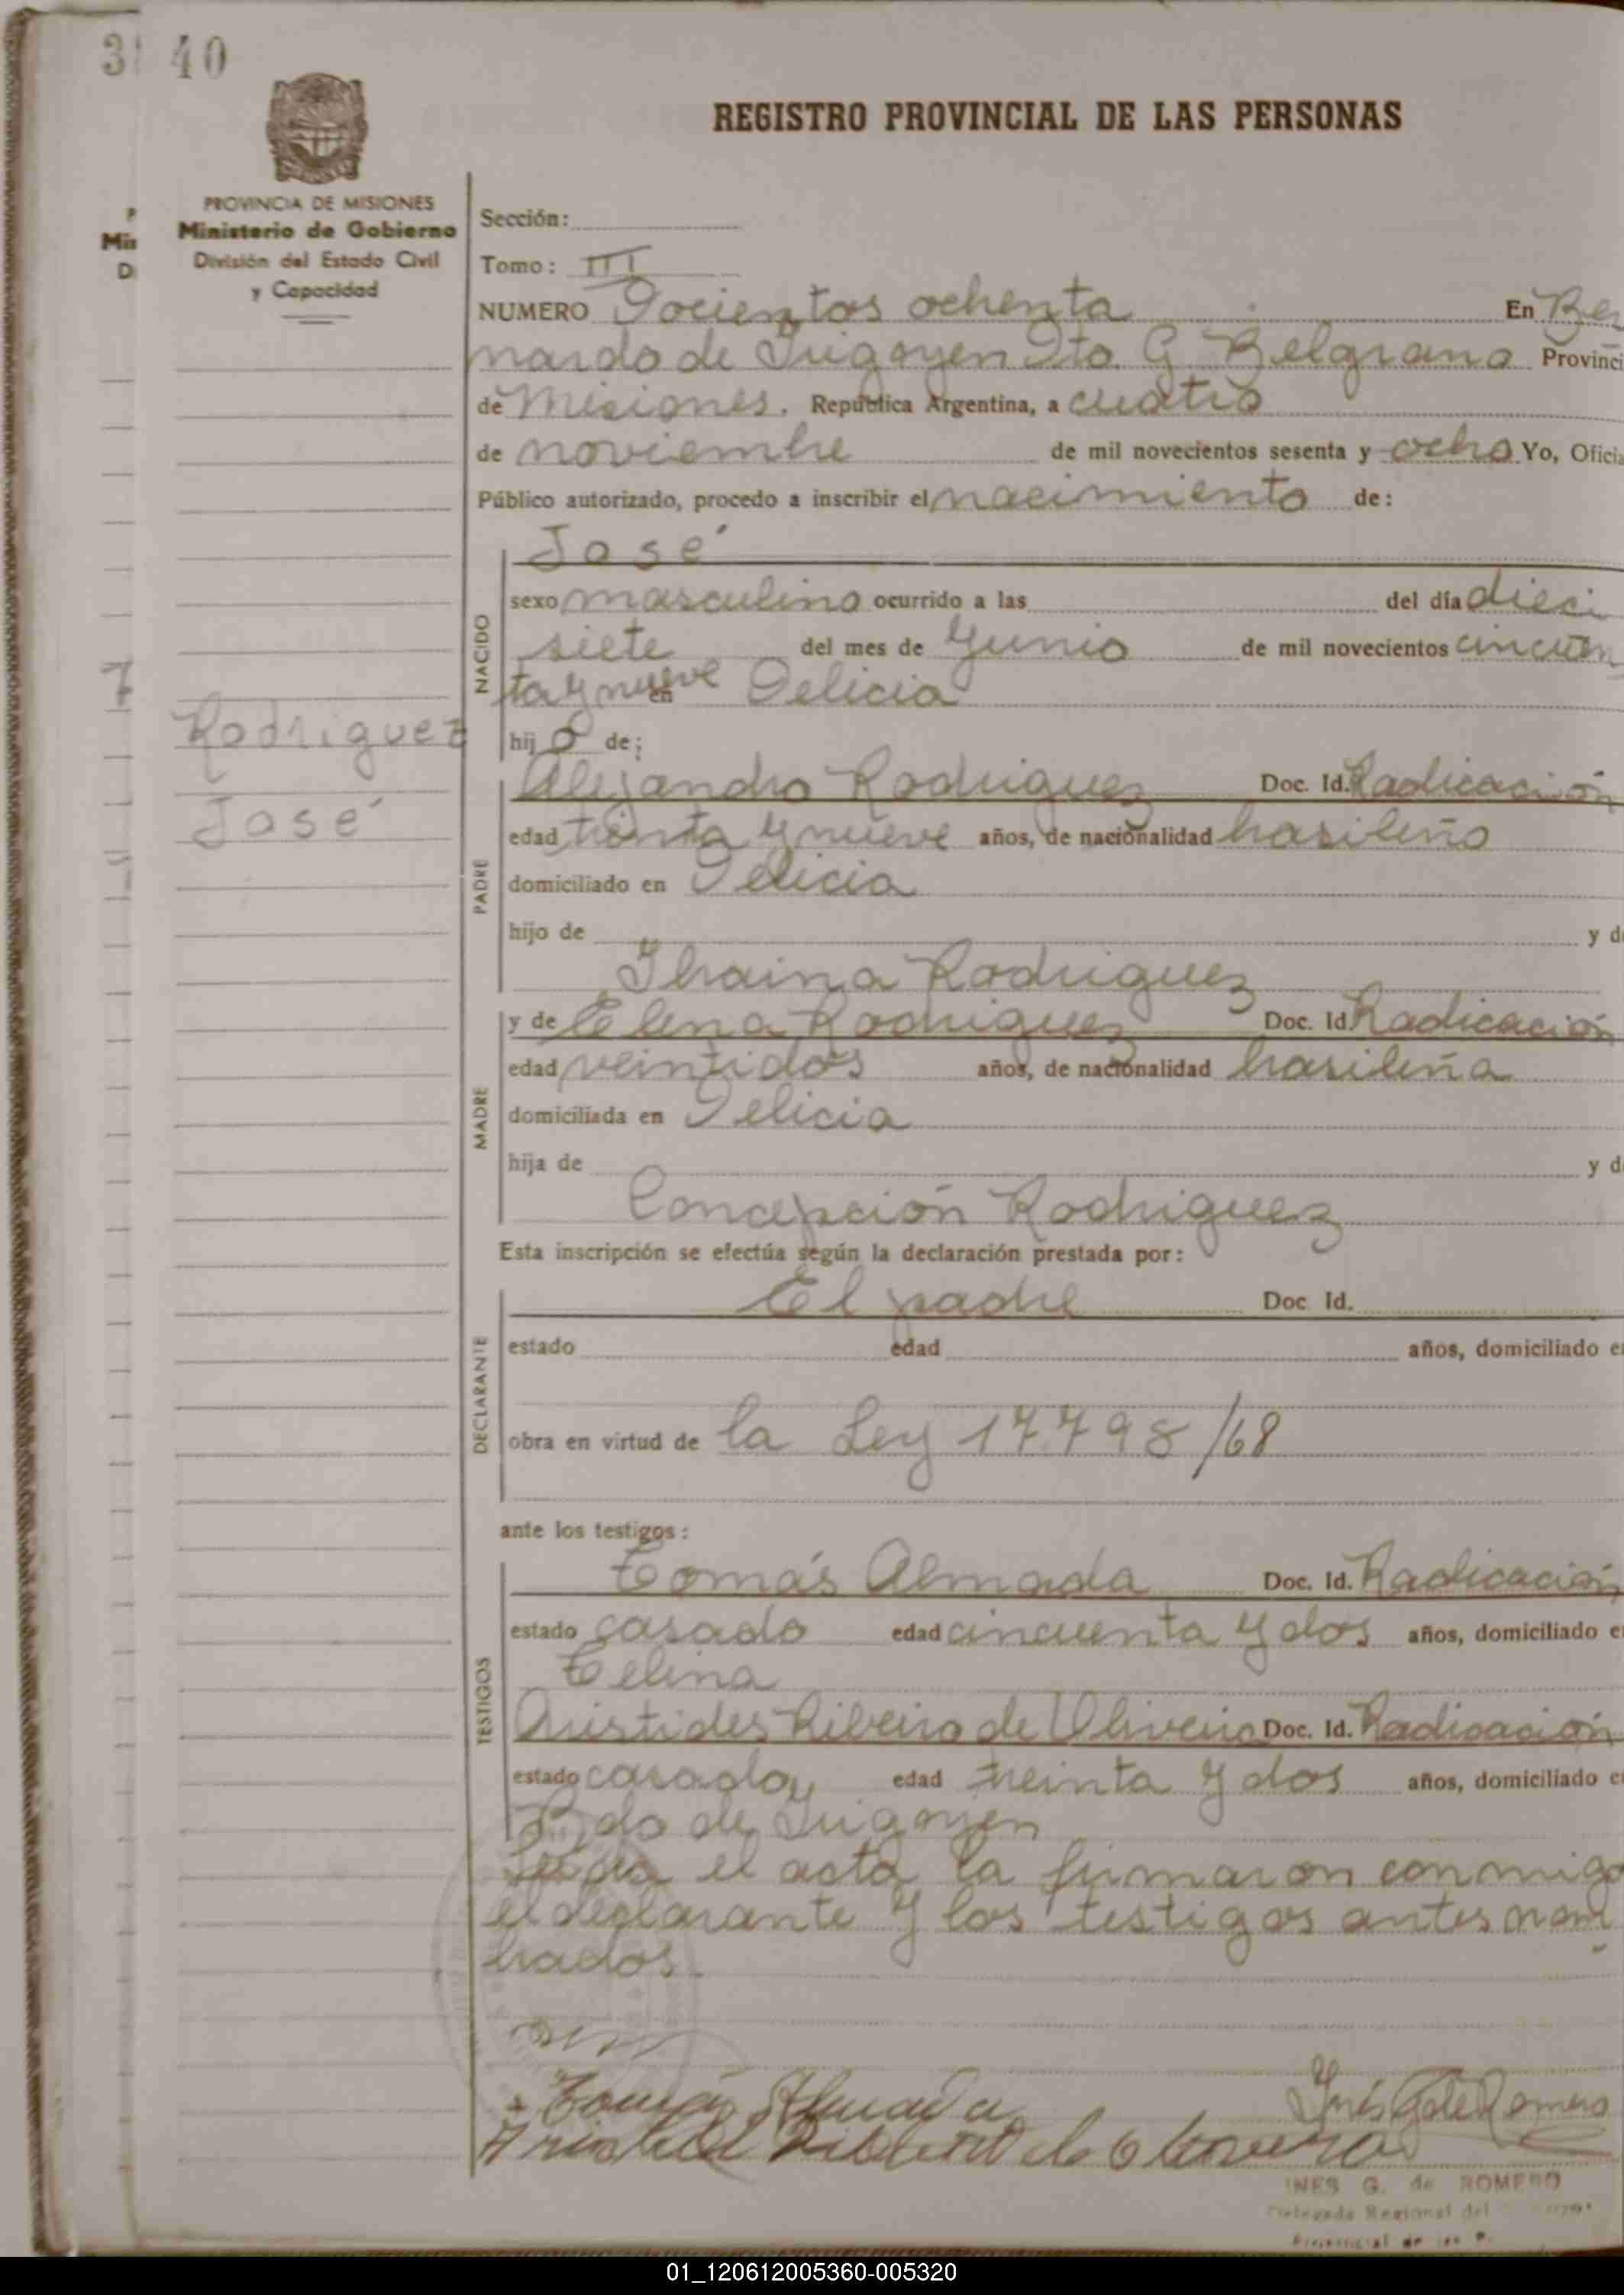 40
PROVINCIA DE MISIONES
Ministerio de Gobierno
División del Estado Civil
y Capacidad
REGISTRO PROVINCIAL DE LAS PERSONAS
Sección:
Tomo: III
NUMERO Docientos ochenta En Ber
nardo de Irigoyen Dto. G. Belgrano Provinci
de Misiones. República Argentina, a cuatro
de noviembre de mil novecientos sesenta y ocho Yo, Oficia
Público autorizado, procedo a inscribir el nacimiento de:
José
NACIDO
sexo masculino ocurrido a las del día dieci
siete del mes de Junio de mil novecientos cincuen
ta y nueve en Delicia
hijo de:
Rodriguez
José
Alejandro Rodriguez Doc. Id. Radicación
PADRE
edad treinta y nueve años, de nacionalidad brasileño
domiciliado en Delicia
hijo de y de
Rodriguez
y de Elena Rodriguez Doc. Id. Radicación
MADRE
edad veintidos años, de nacionalidad brasileña
domiciliada en Delicia
hija de y de
Concepción Rodriguez
Esta inscripción se efectúa según la declaración prestada por:
El padre Doc. Id.
DECLARANTE
estado edad años, domiciliado en
obra en virtud de la Ley 17.798/68
ante los testigos:
Tomás Almada Doc. Id. Radicación
TESTIGOS
estado casado edad cincuenta y dos años, domiciliado en
Celina
Aristides Ribeiro de Oliveira Doc. Id. Radicación
estado casado edad treinta y dos años, domiciliado en
Bdo de Irigoyen
el acta la firmaron conmigo
el declarante y los testigos antes nom
brados.
Tomás Almada
Inés G de Romero
INES G. de ROMERO
Delegada Regional del
Provincial de las P.
01_120612005360-005320